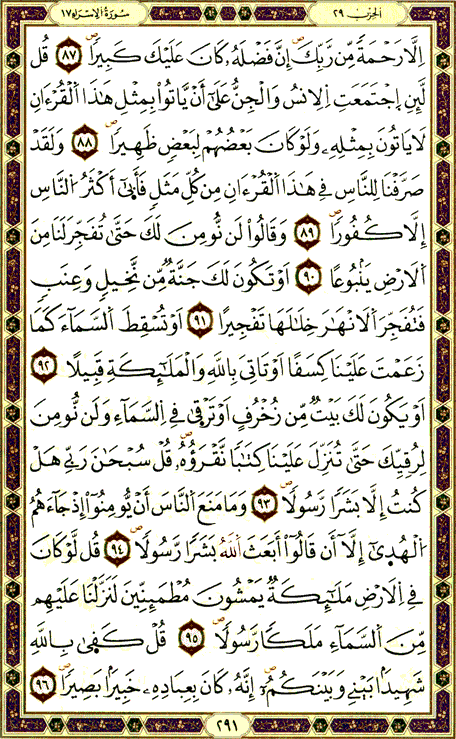 الحزب ٢٩
سُورَةُ الاِسْرَاءِ ١٧
اِلَّا رَحْمَةً مِّن رَّبِّكَ إِنَّ فَضْلَهُۥ كَانَ عَلَيْكَ كَبِيراً ٨٧ قُل
لَّئِنِ اِجْتَمَعَتِ اِلِانسُ وَالْجِنُّ عَلَىٰٓ أَنْ يَّاتُوا۟ بِمِثْلِ هَٰذَا اَلْقُرْءَانِ
لَا يَاتُونَ بِمِثْلِهِۦ وَلَوْ كَانَ بَعْضُهُمْ لِبَعْضٍ ظَهِيراً ٨٨ وَلَقَدْ
صَرَّفْنَا لِلنَّاسِ فِي هَٰذَا اَلْقُرْءَانِ مِن كُلِّ مَثَلٍ فَأَبَىٰٓ أَكْثَرُ اُلنَّاسِ
إِلَّا كُفُوراً ٨٩ وَقَالُوا۟ لَن نُّومِنَ لَكَ حَتَّىٰ تُفَجِّرَ لَنَا مِنَ
اَلَارْضِ يَنۢبُوعاً ٩٠ اَوْ تَكُونَ لَكَ جَنَّةٌ مِّن نَّخِيلٍ وَعِنَبٍ
فَتُفَجِّرَ اَلَانْهَٰرَ خِلَٰلَهَا تَفْجِيراً ٩١ اَوْ تُسْقِطَ اَلسَّمَآءَ كَمَا
زَعَمْتَ عَلَيْنَا كِسَفاً اَوْ تَاتِيَ بِاللَّهِ وَالْمَلَٰٓئِكَةِ قَبِيلاً ٩٢
اَوْ يَكُونَ لَكَ بَيْتٌ مِّن زُخْرُفٍ اَوْ تَرْقَىٰ فِي اِلسَّمَآءِ وَلَن نُّومِنَ
لِرُقِيِّكَ حَتَّىٰ تُنَزِّلَ عَلَيْنَا كِتَٰباً نَّقْرَؤُهُۥ قُلْ سُبْحَانَ رَبِّي هَلْ
كُنتُ إِلَّا بَشَراً رَّسُولاً ٩٣ وَمَا مَنَعَ اَلنَّاسَ أَنْ يُّومِنُوٓا۟ إِذْ جَآءَهُمُ
اُلْهُدَىٰٓ إِلَّآ أَن قَالُوٓا۟ أَبَعَثَ اَللَّهُ بَشَراً رَّسُولاً ٩٤ قُل لَّوْ كَانَ
فِي اِلَارْضِ مَلَٰٓئِكَةٌ يَمْشُونَ مُطْمَئِنِّينَ لَنَزَّلْنَا عَلَيْهِم
مِّنَ اَلسَّمَآءِ مَلَكاً رَّسُولاً ٩٥ قُلْ كَفَىٰ بِاللَّهِ
شَهِيداَۢ بَيْنِي وَبَيْنَكُمُۥٓ إِنَّهُۥ كَانَ بِعِبَادِهِۦ خَبِيراَۢ بَصِيراً ٩٦
٢٩١